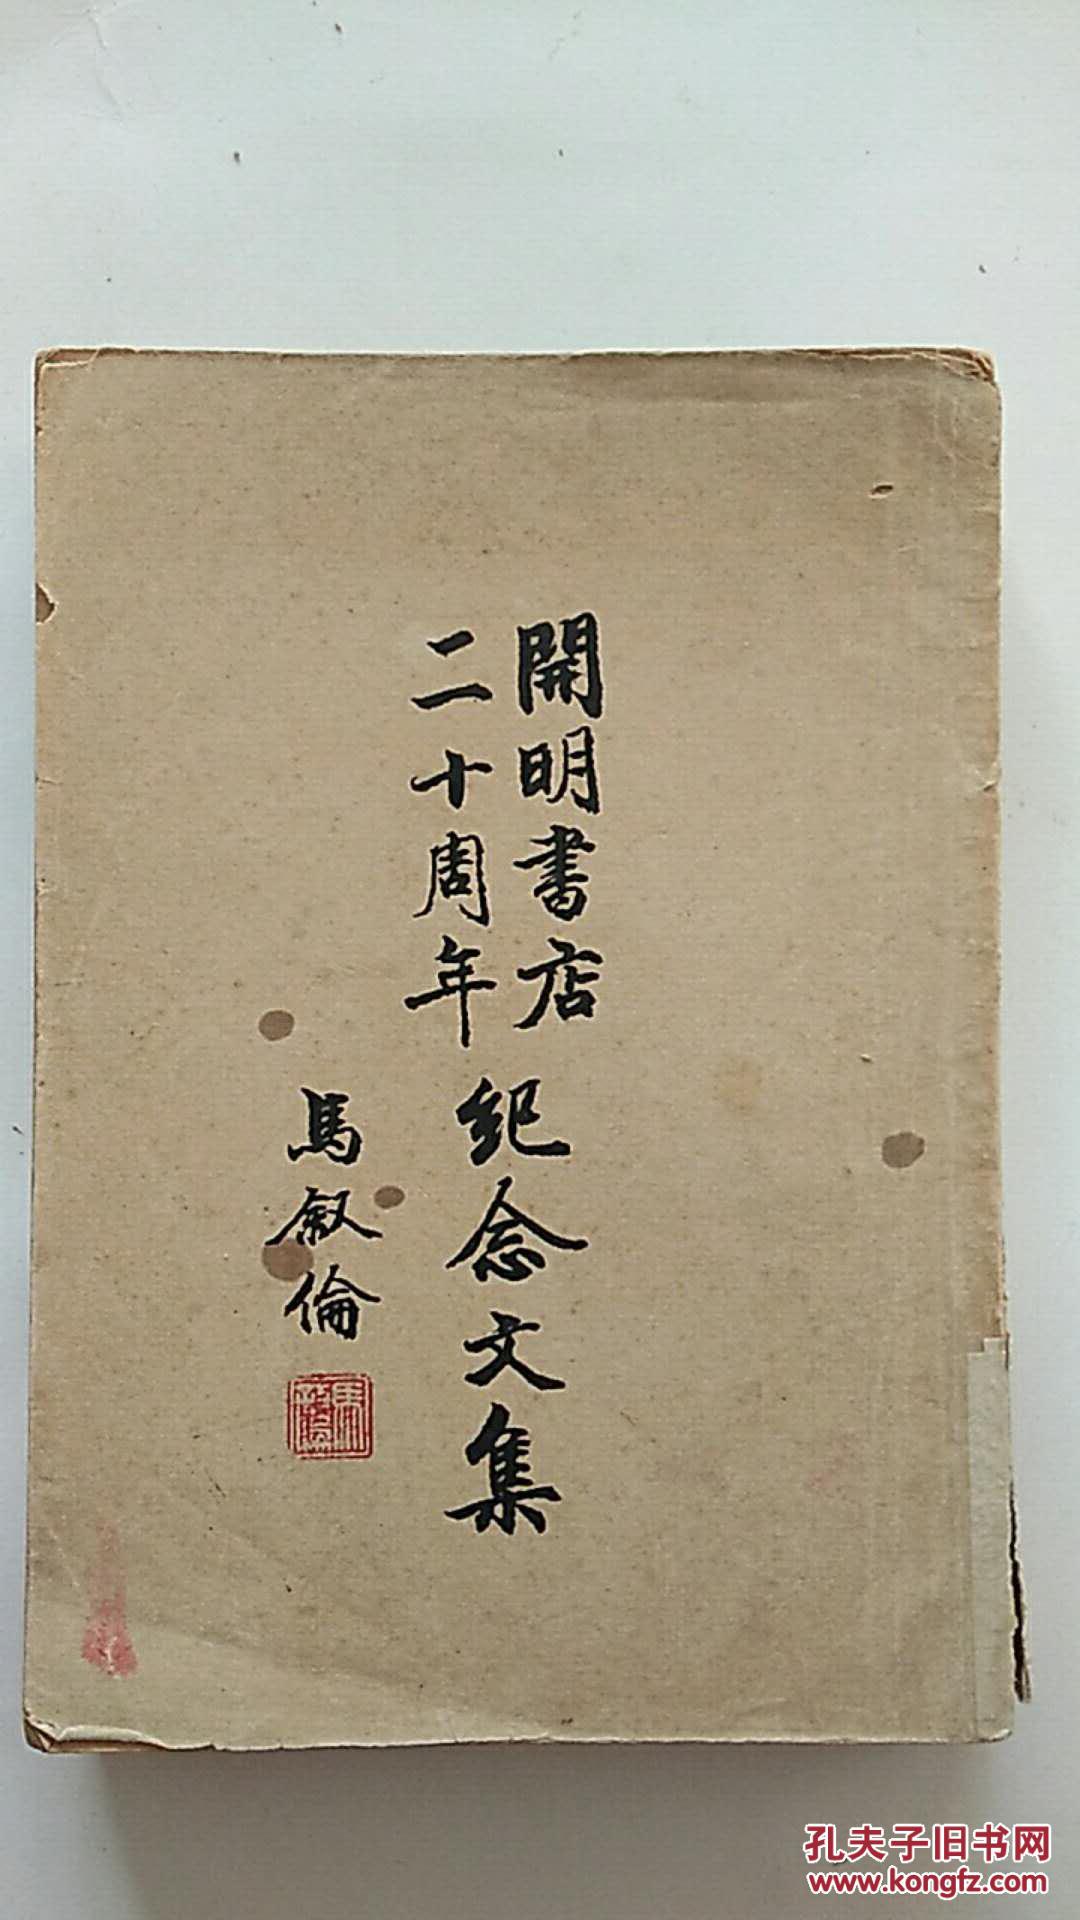 開明書店
二十周年
紀念文集
馬叙倫
孔夫子旧书网
www.kongfz.com